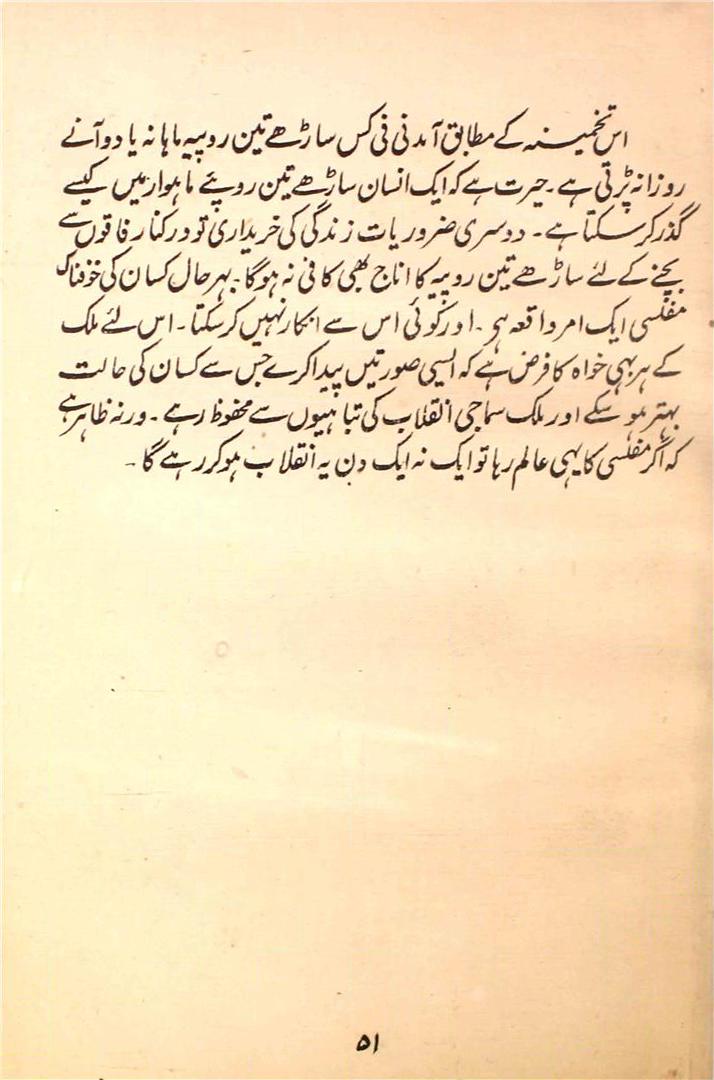 اس تخمینہ کے مطابق آمدنی فی کس ساڑھے تین روپیہ ماہانہ یا دو آنے
روزانہ پڑتی ہے۔ حیرت ہے کہ ایک انسان ساڑھے تین روپئے ماہوار میں کیسے
گذر کر سکتا ہے۔ دوسری ضروریات زندگی کی خریداری تو درکنار فاقوں سے
بچنے کے لئے ساڑھے تین روپیہ کا اناج بھی کافی نہ ہوگا۔ بہر حال کسان کی خوفناک
مفلسی ایک امر واقعہ ہی۔ اور کوئی اس سے انکار نہیں کر سکتا۔ اس لئے ملک
کے ہر بہی خواہ کا فرض ہے کہ ایسی صورتیں پیدا کرے جس سے کسان کی حالت
بہتر ہو سکے اور ملک سماجی انقلاب کی تباہیوں سے محفوظ رہے۔ ورنہ ظاہر ہے
کہ اگر مفلسی کا یہی عالم رہا تو ایک نہ ایک دن یہ انقلاب ہو کر رہے گا۔
۵۱